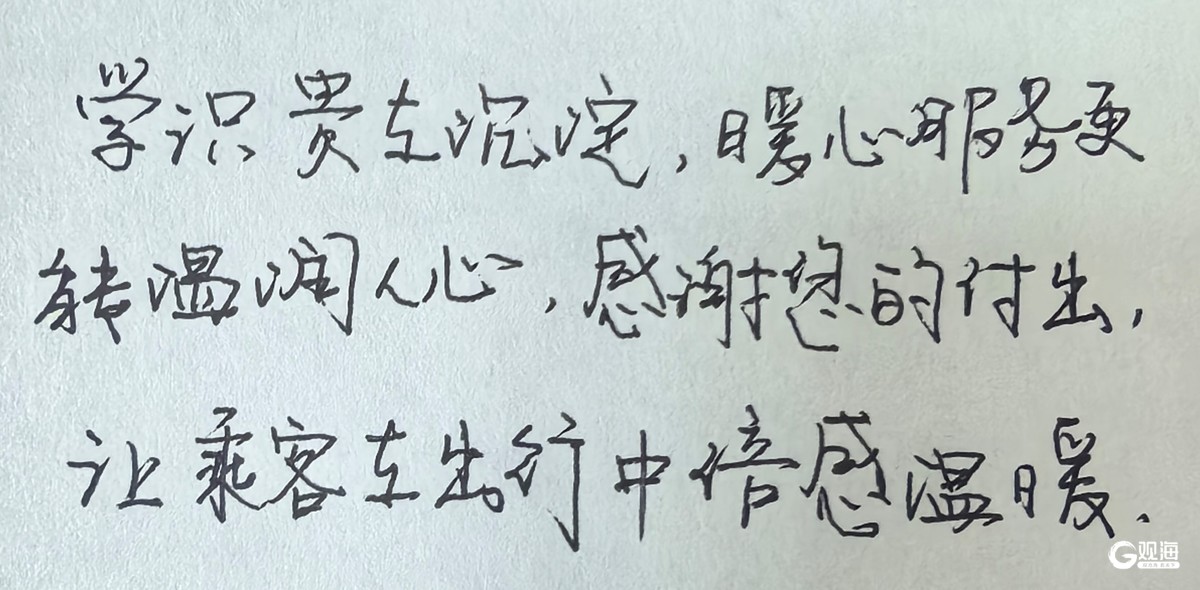 学识贵在沉淀，暖心服务更
能温润人心，感谢您的付出，
让乘客在出行中倍感温暖.
观海